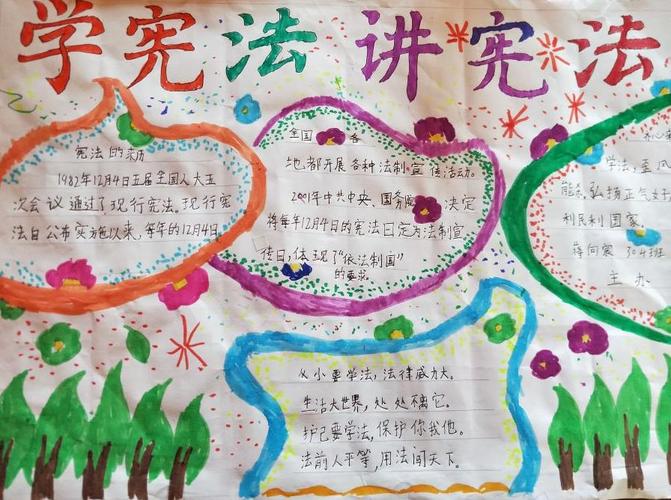 学宪法 讲宪法
宪法的来历
1982年12月4日五届全国人大五
次会议通过了现行宪法。现行宪
法自公布实施以来,每年的12月4日
全国 各
地都开展各种法制宣传活动。
2001年中共中央、国务院 决定
将每年12月4日的宪法日定为法制宣
传日,体现了"依法制国"
的要求
学法,
弘扬正气
利民利国家
304班
主办
从小要学法,法律威力大。
生活大世界,处处不离它。
护己要学法,保护你我他。
法前人平等,用法闯天下。